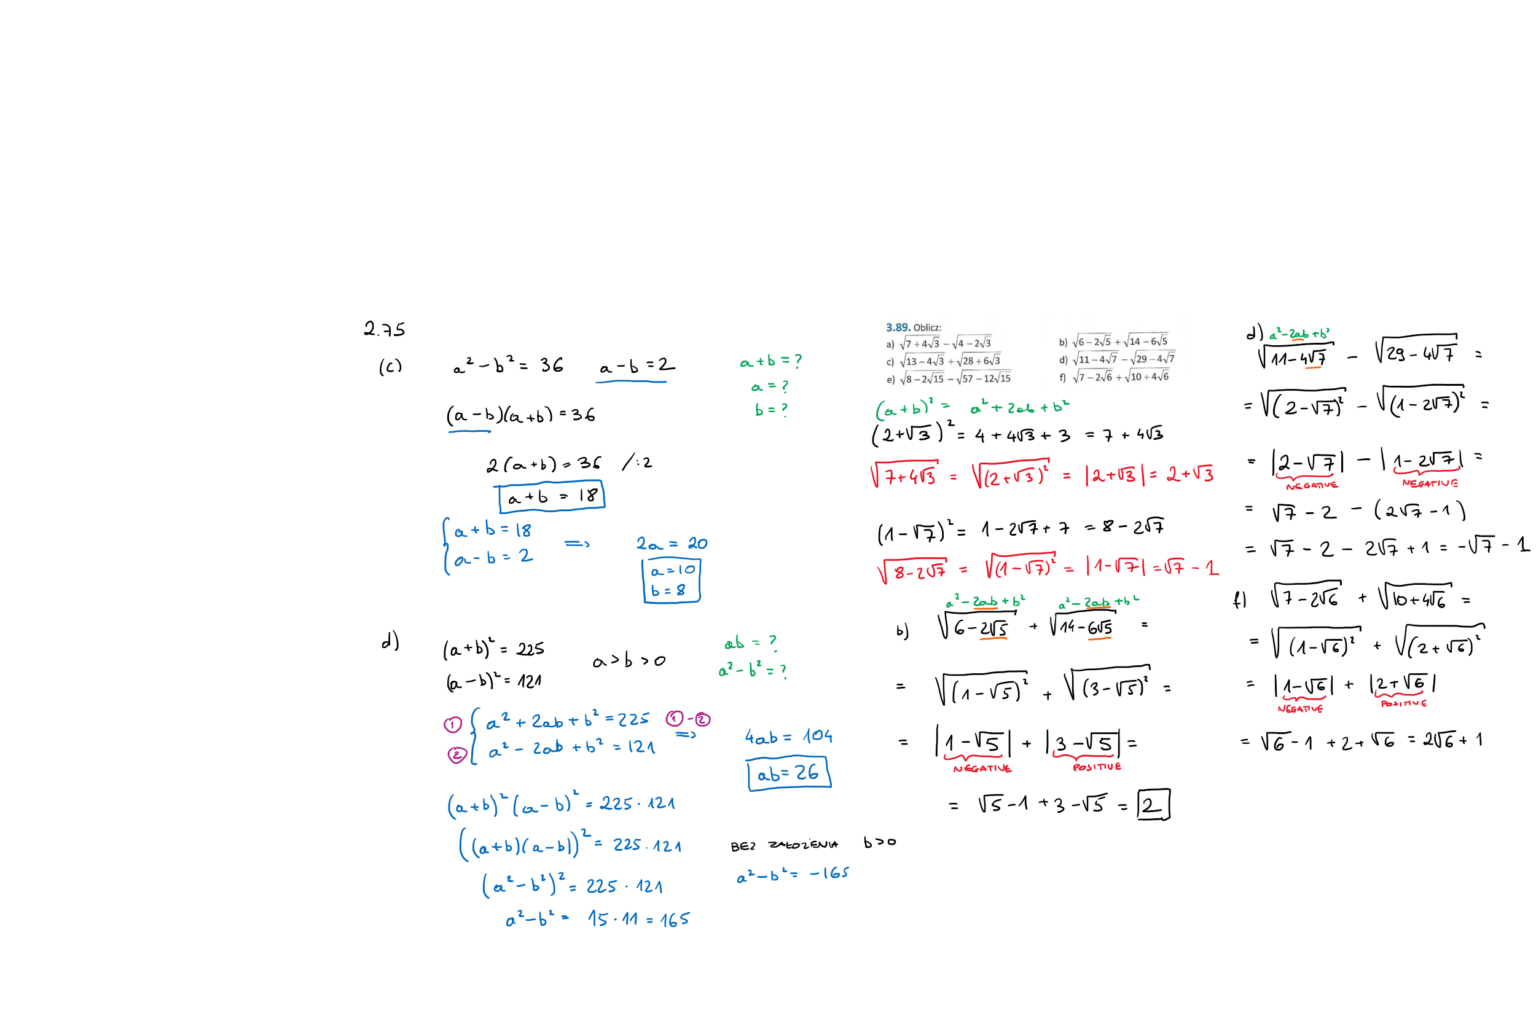 2.75
(c) a² - b² = 36 a - b = 2 a + b = ?
a = ?
b = ?
(a - b)(a + b) = 36
2(a + b) = 36 /:2
a + b = 18
a + b = 18
a - b = 2
=> 2a = 20
a = 10
b = 8
d) (a + b)² = 225
(a - b)² = 121
a > b > 0
ab = ?
a² - b² = ?
① a² + 2ab + b² = 225 ①-②
② a² - 2ab + b² = 121 =>
4ab = 104
ab = 26
(a + b)² (a - b)² = 225 · 121
((a + b)(a - b))² = 225 · 121
(a² - b²)² = 225 · 121
a² - b² = 15 · 11 = 165
BEZ ZAŁOŻENIA b > 0
a² - b² = -165
3.89. Oblicz:
a) √(7 + 4√3) - √(4 - 2√3) b) √(6 - 2√5) + √(14 - 6√5)
c) √(13 - 4√3) + √(28 + 6√3) d) √(11 - 4√7) - √(29 - 4√7)
e) √(8 - 2√15) - √(57 - 12√15) f) √(7 - 2√6) + √(10 + 4√6)
(a + b)² = a² + 2ab + b²
(2 + √3)² = 4 + 4√3 + 3 = 7 + 4√3
√(7 + 4√3) = √((2 + √3)²) = |2 + √3| = 2 + √3
(1 - √7)² = 1 - 2√7 + 7 = 8 - 2√7
√(8 - 2√7) = √((1 - √7)²) = |1 - √7| = √7 - 1
a² - 2ab + b² a² - 2ab + b²
b) √(6 - 2√5) + √(14 - 6√5) =
= √((1 - √5)²) + √((3 - √5)²) =
= |1 - √5| + |3 - √5| =
NEGATIVE POSITIVE
= √5 - 1 + 3 - √5 = 2
d) a² - 2ab + b²
√(11 - 4√7) - √(29 - 4√7) =
= √((2 - √7)²) - √((1 - 2√7)²) =
= |2 - √7| - |1 - 2√7| =
NEGATIVE NEGATIVE
= √7 - 2 - (2√7 - 1)
= √7 - 2 - 2√7 + 1 = -√7 - 1
f) √(7 - 2√6) + √(10 + 4√6) =
= √((1 - √6)²) + √((2 + √6)²)
= |1 - √6| + |2 + √6|
NEGATIVE POSITIVE
= √6 - 1 + 2 + √6 = 2√6 + 1